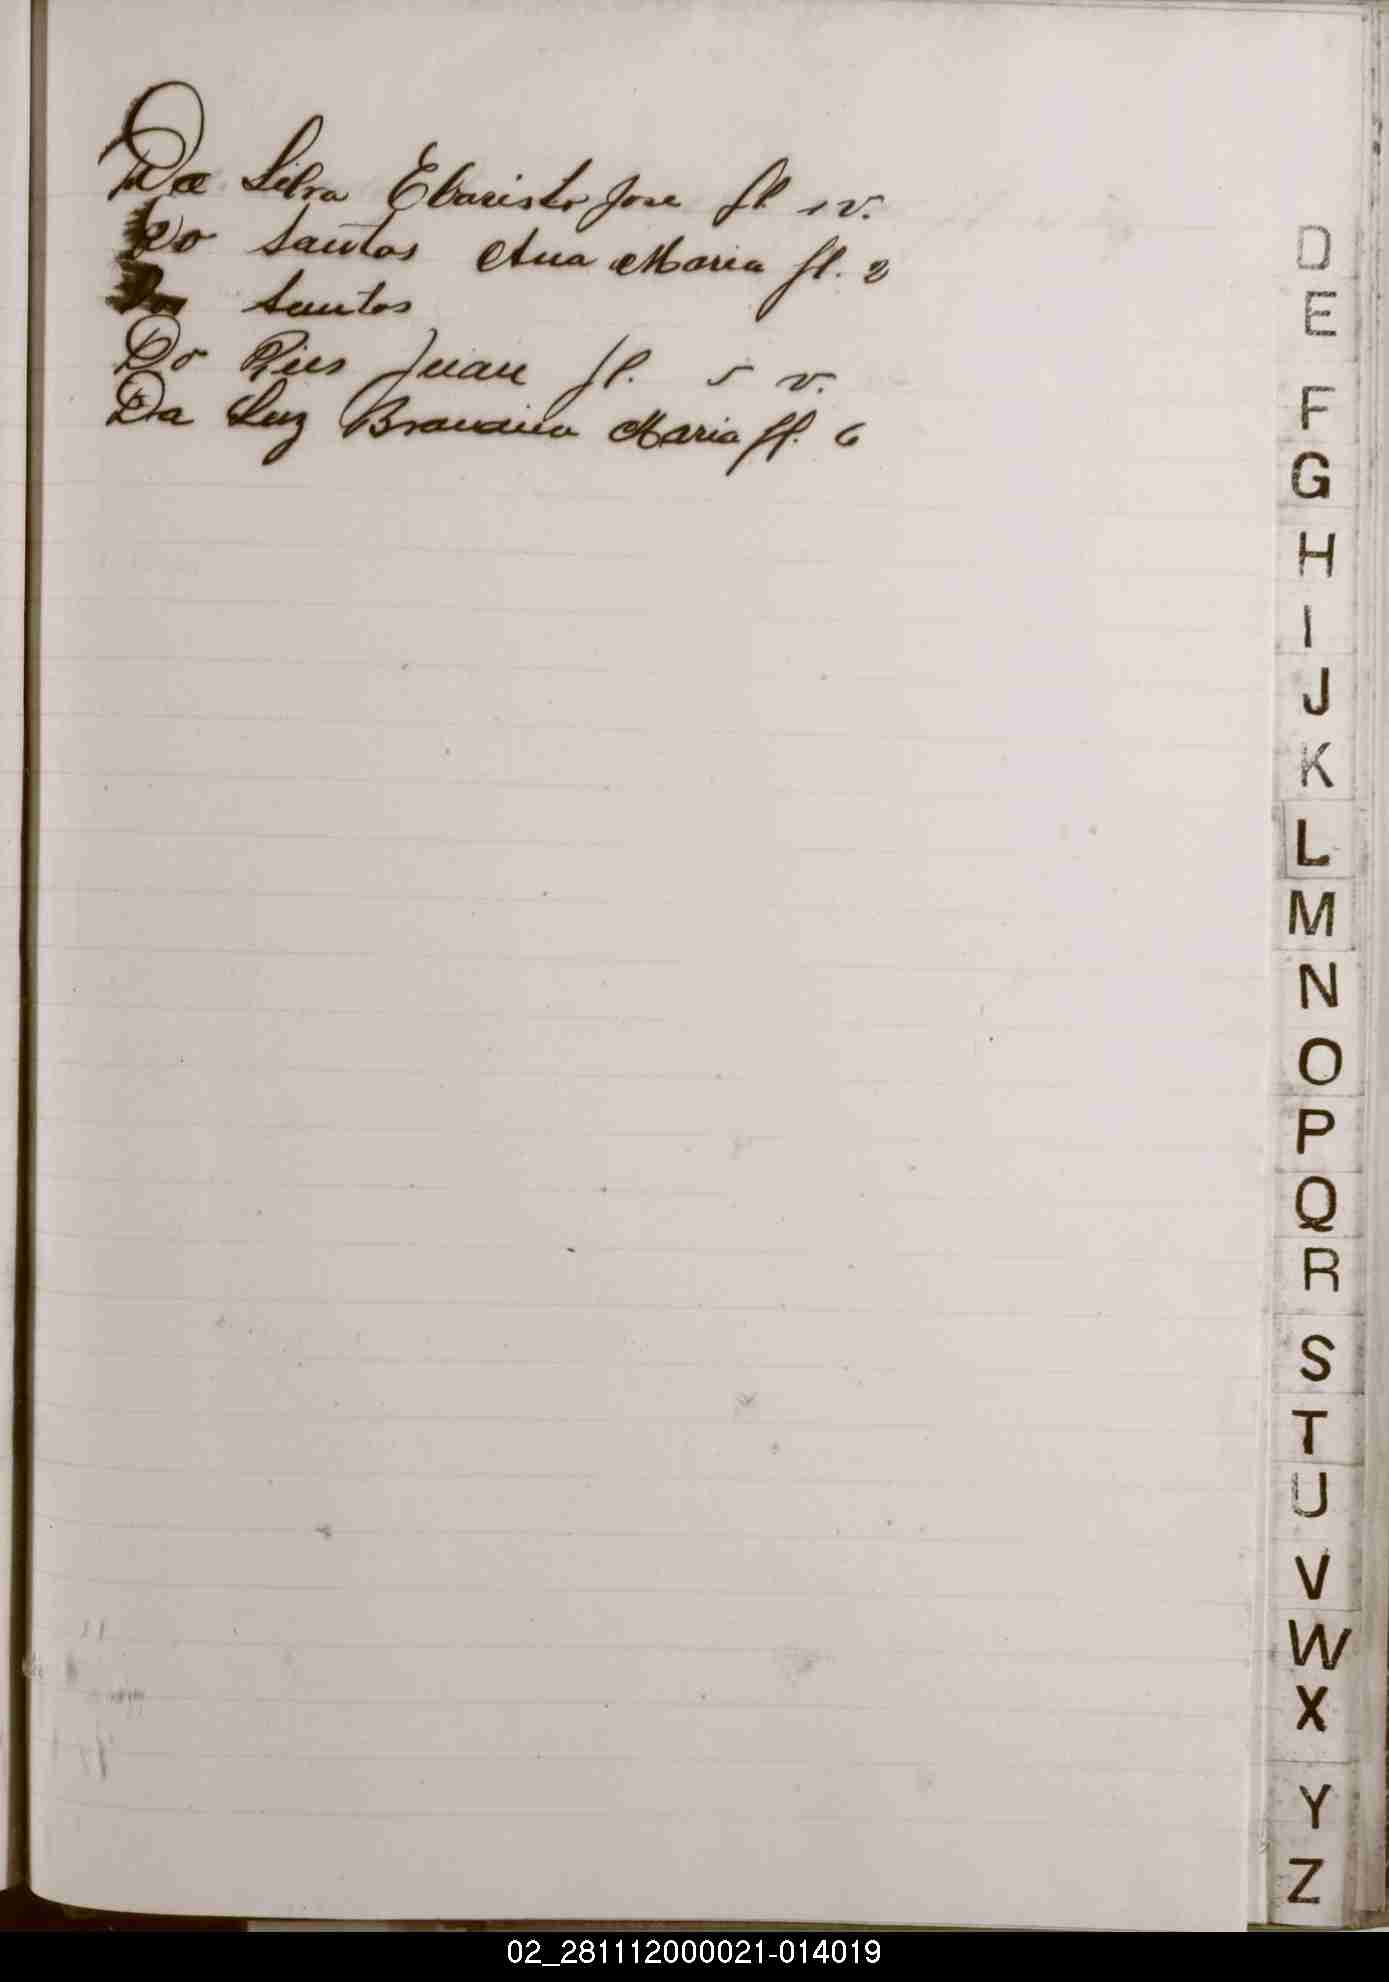 Da Silva Ebaristo Jose fl 1 v.
Do Santos Ana Maria fl. 2
Dos Santos
Do Juan fl. 5 v.
Da Luz Maria fl. 6
D
E
F
G
H
I
J
K
L
M
N
O
P
Q
R
S
T
U
V
W
X
Y
Z
02_281112000021-014019